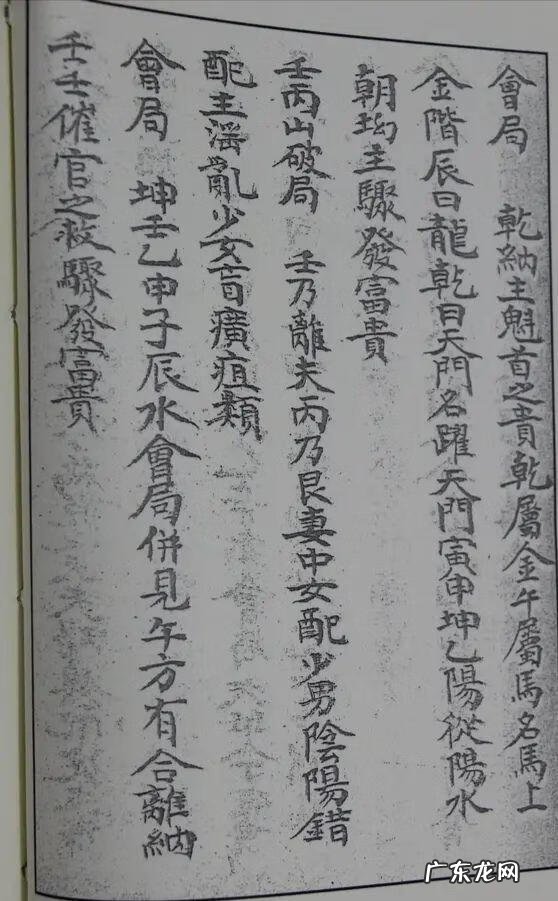 會局 乾納主魁首之貴乾屬金午屬馬名馬上
金階辰曰龍乾曰天門名躍天門寅申坤乙陽從陽水
朝坳主驟發富貴
壬丙山破局 壬乃離夫丙乃艮妻中女配少男陰陽錯
配主淫亂少女盲癀疽類
會局 坤壬乙申子辰水會局併見午方有合離納
壬壬催官之救驟發富貴
广东龙网